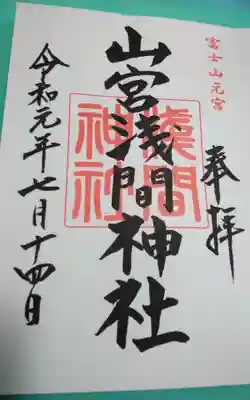 富士山元宮
奉拝
山宮浅間神社
淺間神社
令和元年七月十四日